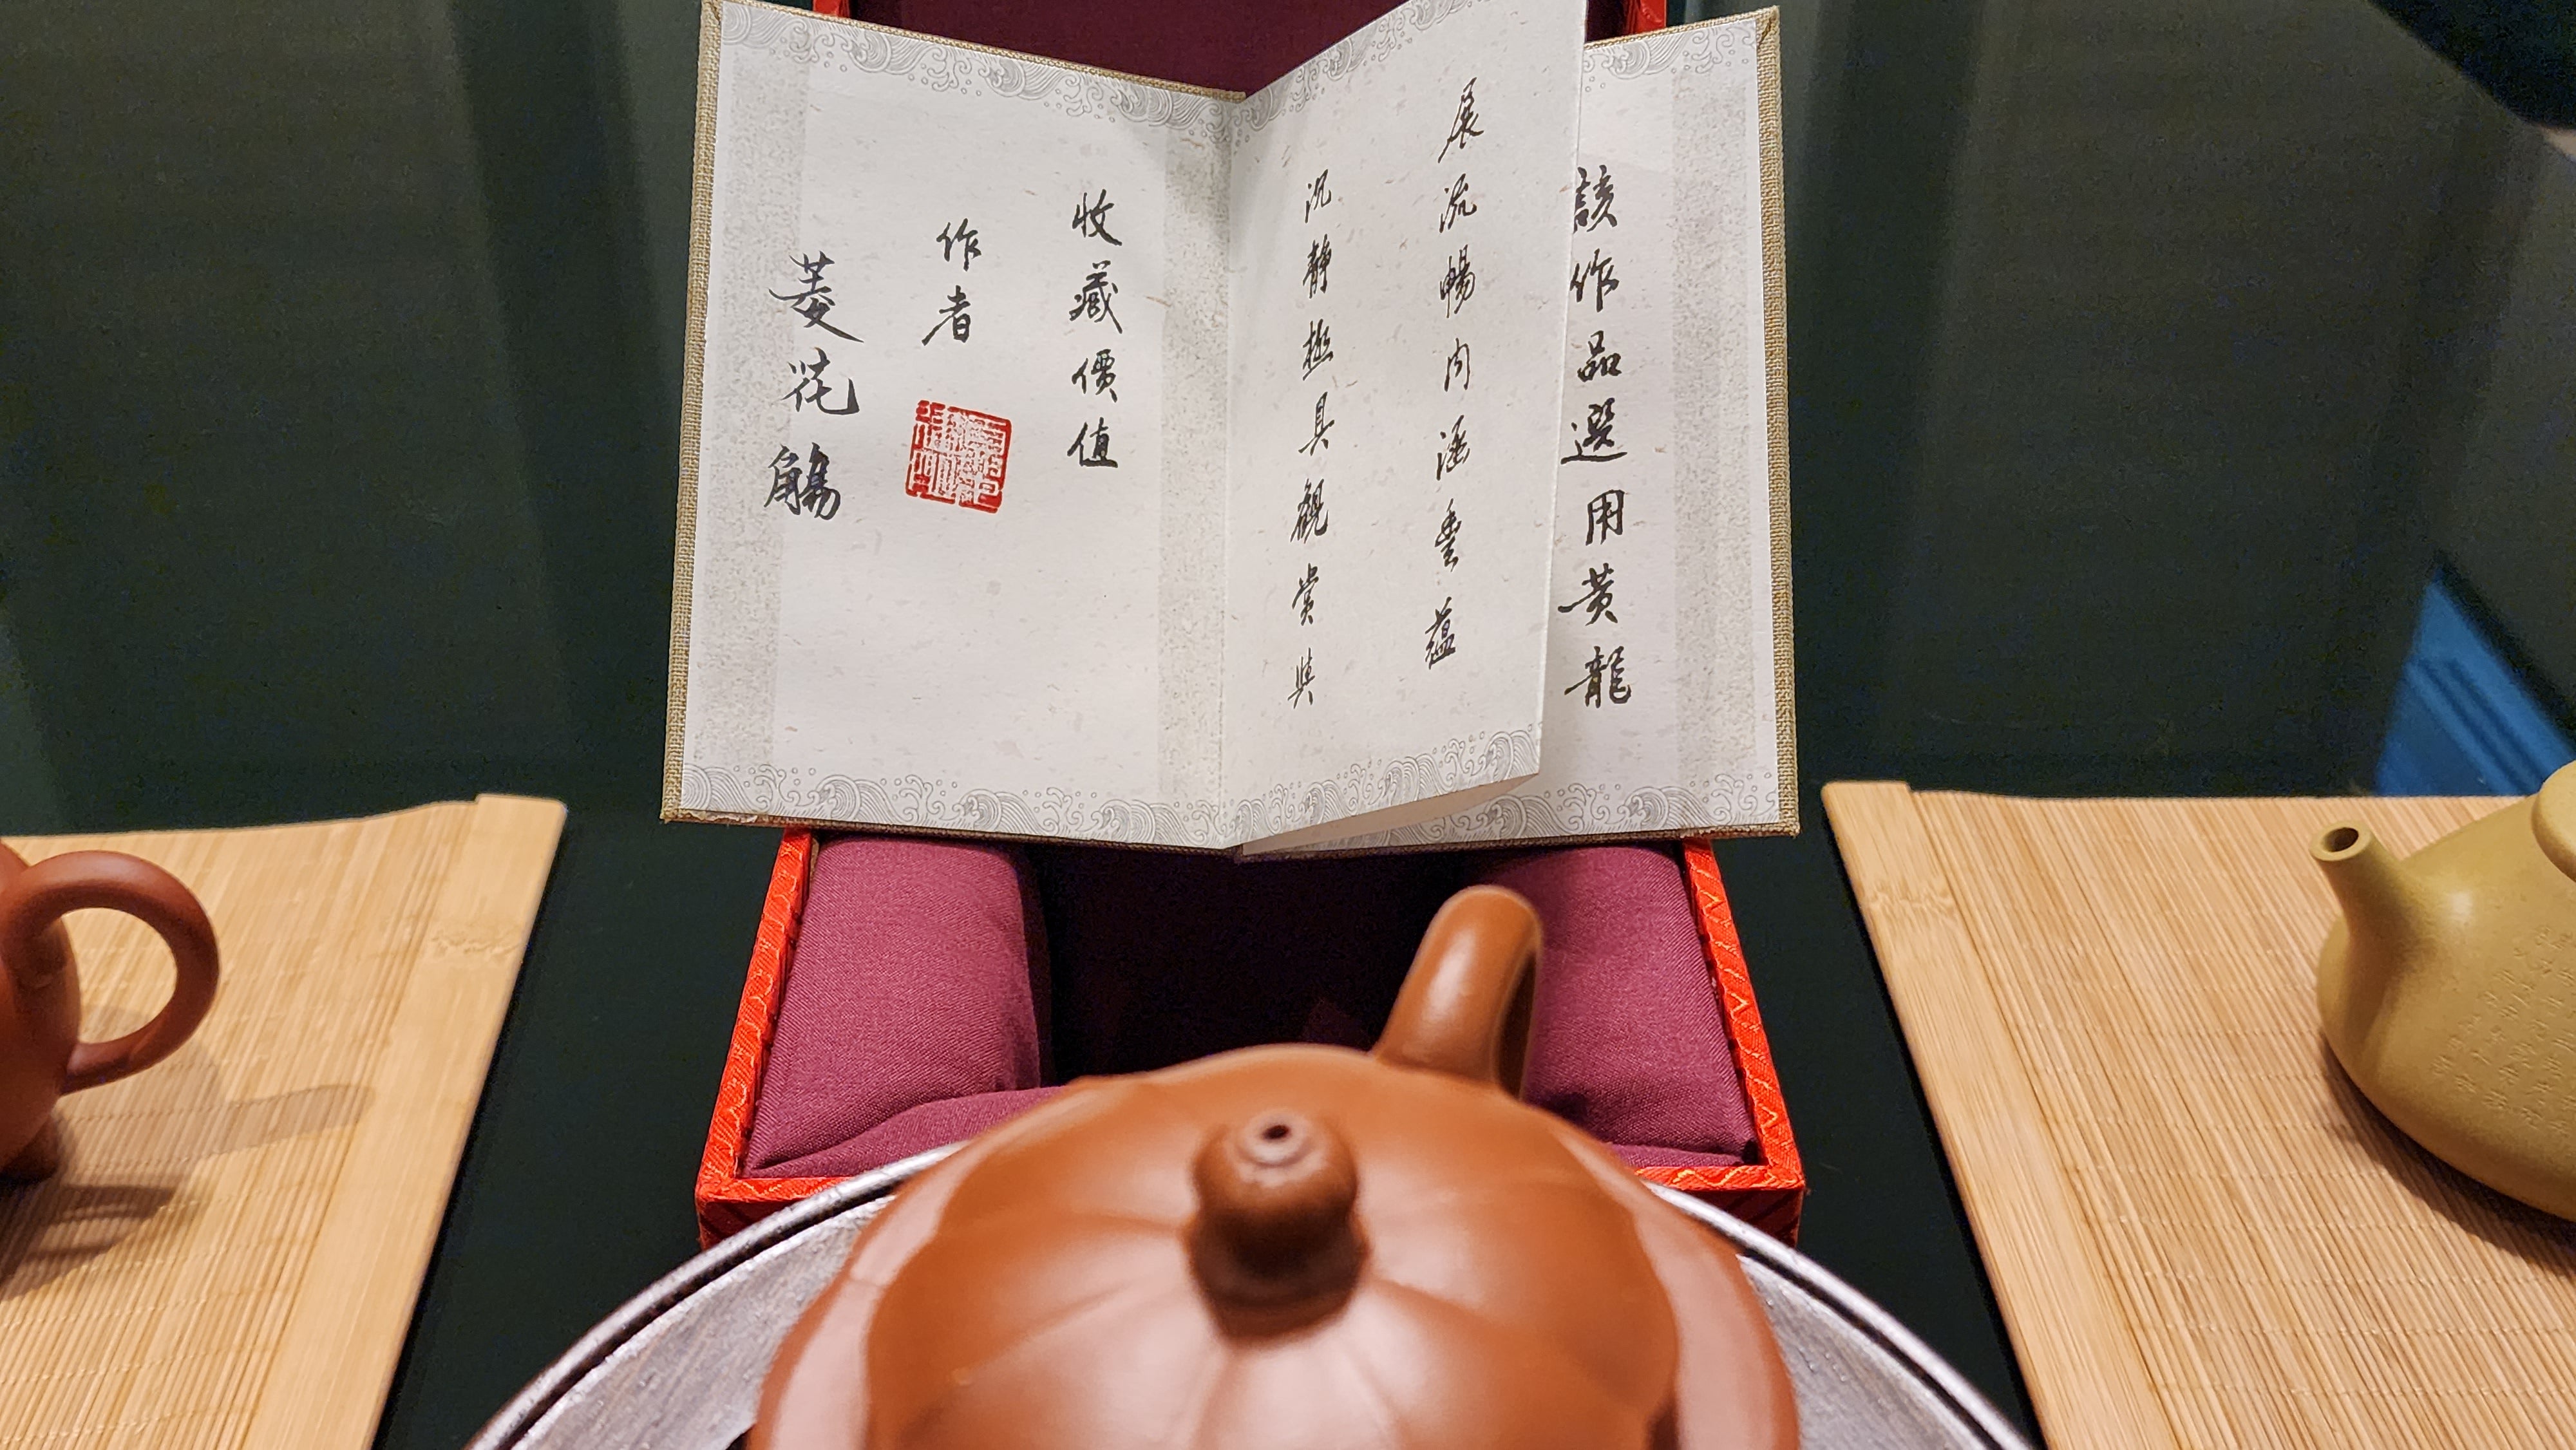 該作品選用黃龍
展流暢內涵豐蘊
沉靜極具觀賞與
收藏價值
作者
菱花觴